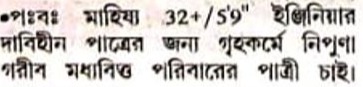 ●পঃবঃ মাহিষ্য 32+/5'9" ইঞ্জিনিয়ার
দাবিহীন পাত্রের জন্য গৃহকর্মে নিপুণা
গরীব মধ্যবিত্ত পরিবারের পাত্রী চাই।